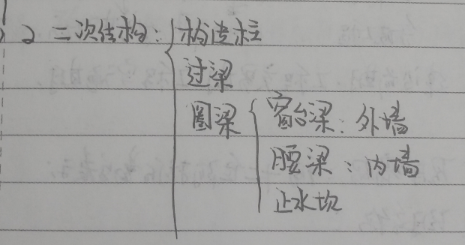 2 二次结构：构造柱
过梁
圈梁 窗台梁：外墙
腰梁：内墙
止水坎